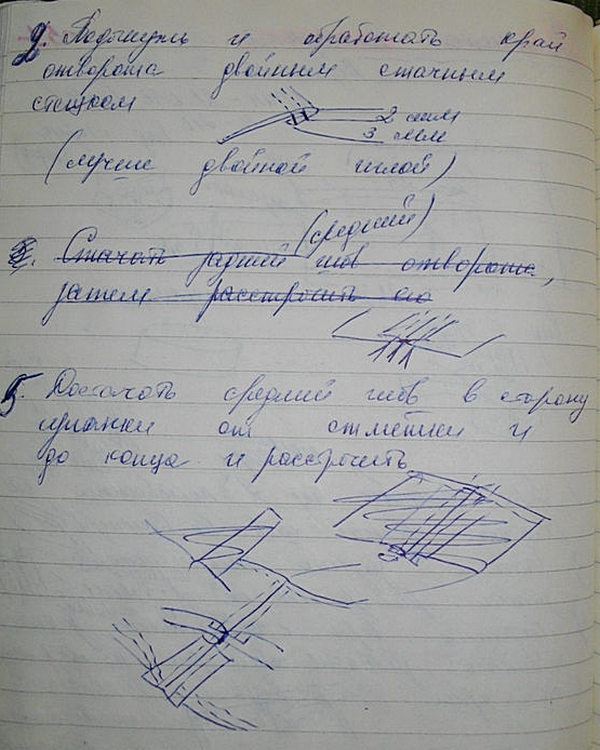 4. Подогнуть и обработать край
отворота двойным стачным
стежком
2 мм
3 мм
(лучше двойной иглой)
(средний)
Стачать задний шов отворота,
затем расстрочить его
5. Достачать средний шов в сторону
от отметки и
до конца и расстрочить